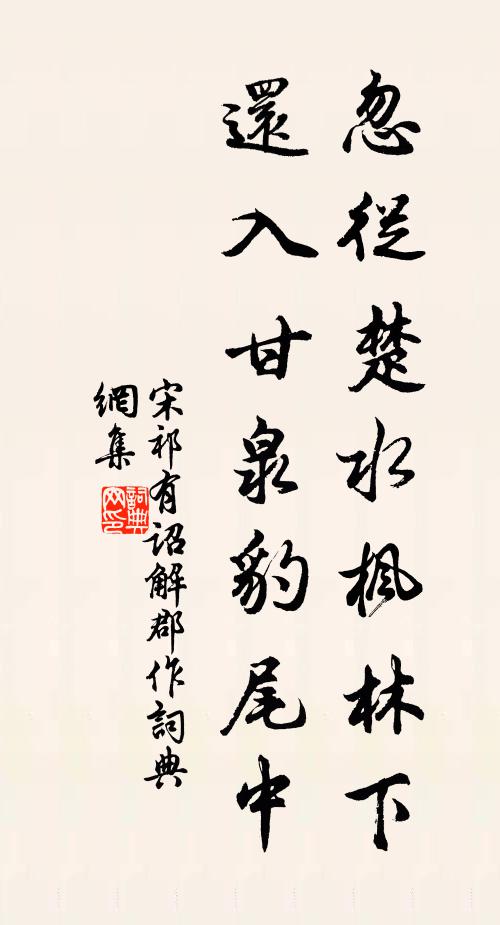 忽從楚水楓林下
還入甘泉豹尾中
宋祁有詔解郡作詞典
網集
詞典
网印